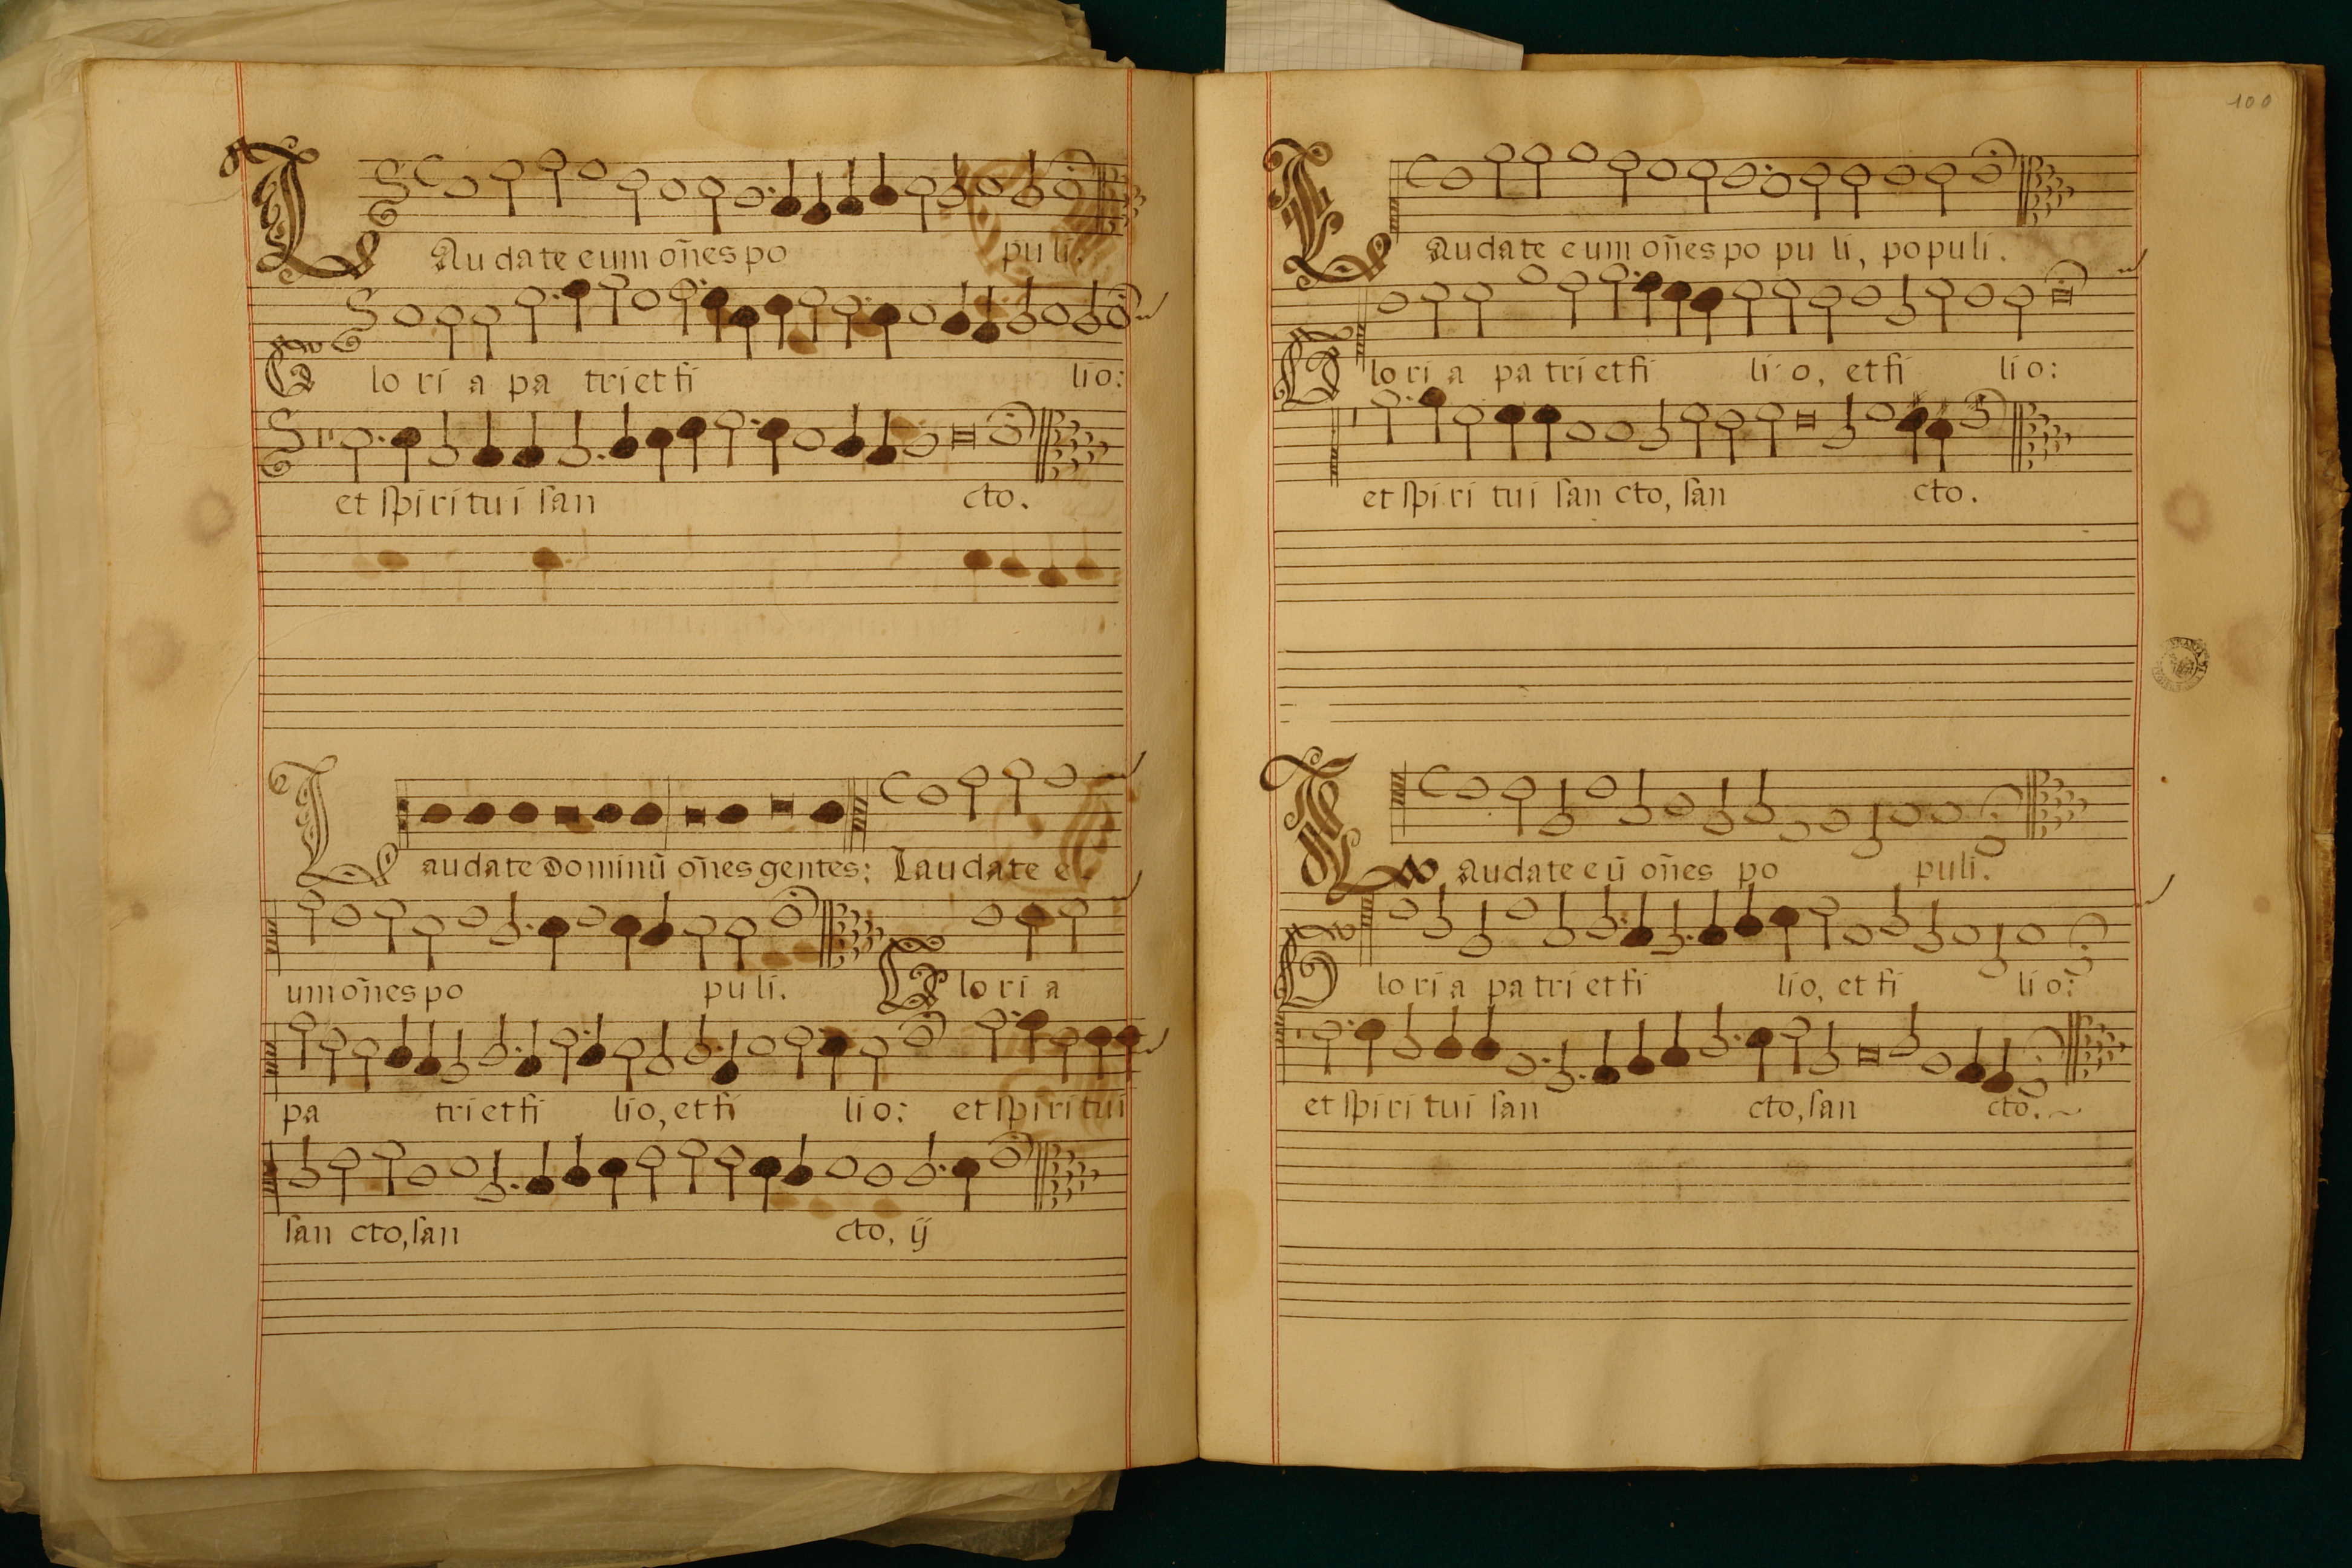 Laudate eum om̃es po puli.
Glo ri a pa tri et fi lio:
et spiri tui san cto.
Laudate Dominũ om̃es gentes: Laudate e
um om̃es po puli. Glo ri a
pa tri et fi lio, et fi lio: et spiri tui
san cto, san cto, ij
100
Laudate eum om̃es po pu li, populi.
Glo ri a pa tri et fi li o, et fi lio:
et spi ri tui san cto, san cto.
Laudate eũ om̃es po puli.
Glo ri a pa tri et fi lio, et fi lio:
et spi ri tui san cto, san cto.